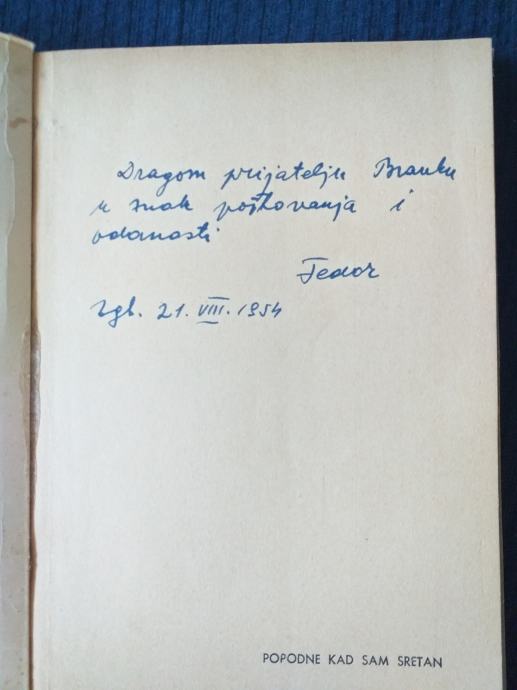 Dragom prijatelju Branku
u znak poštovanja i
odanosti
Fedor
Zgb. 21. VIII. 1954
POPODNE KAD SAM SRETAN